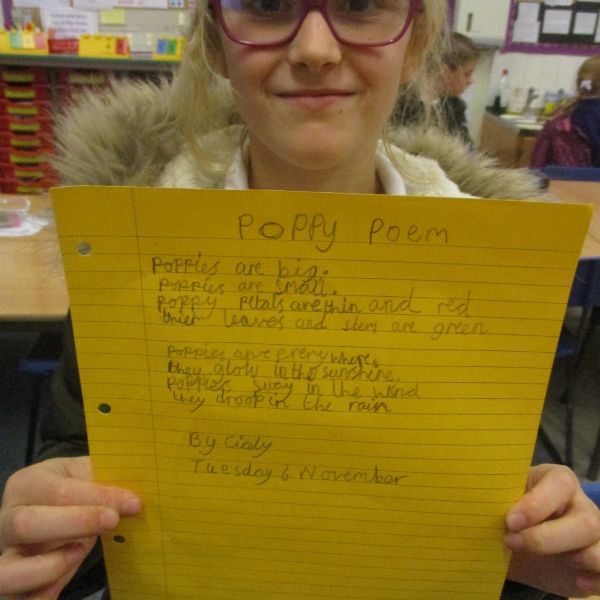 POPPY Poem
poppies are big.
poppies are small.
poppy petals are thin and red
thier leaves and stem are green
poppies are everywhere,
they glow in the sunshine.
poppies sway in the wind
they droop in the rain
By Cicely
Tuesday 6 November